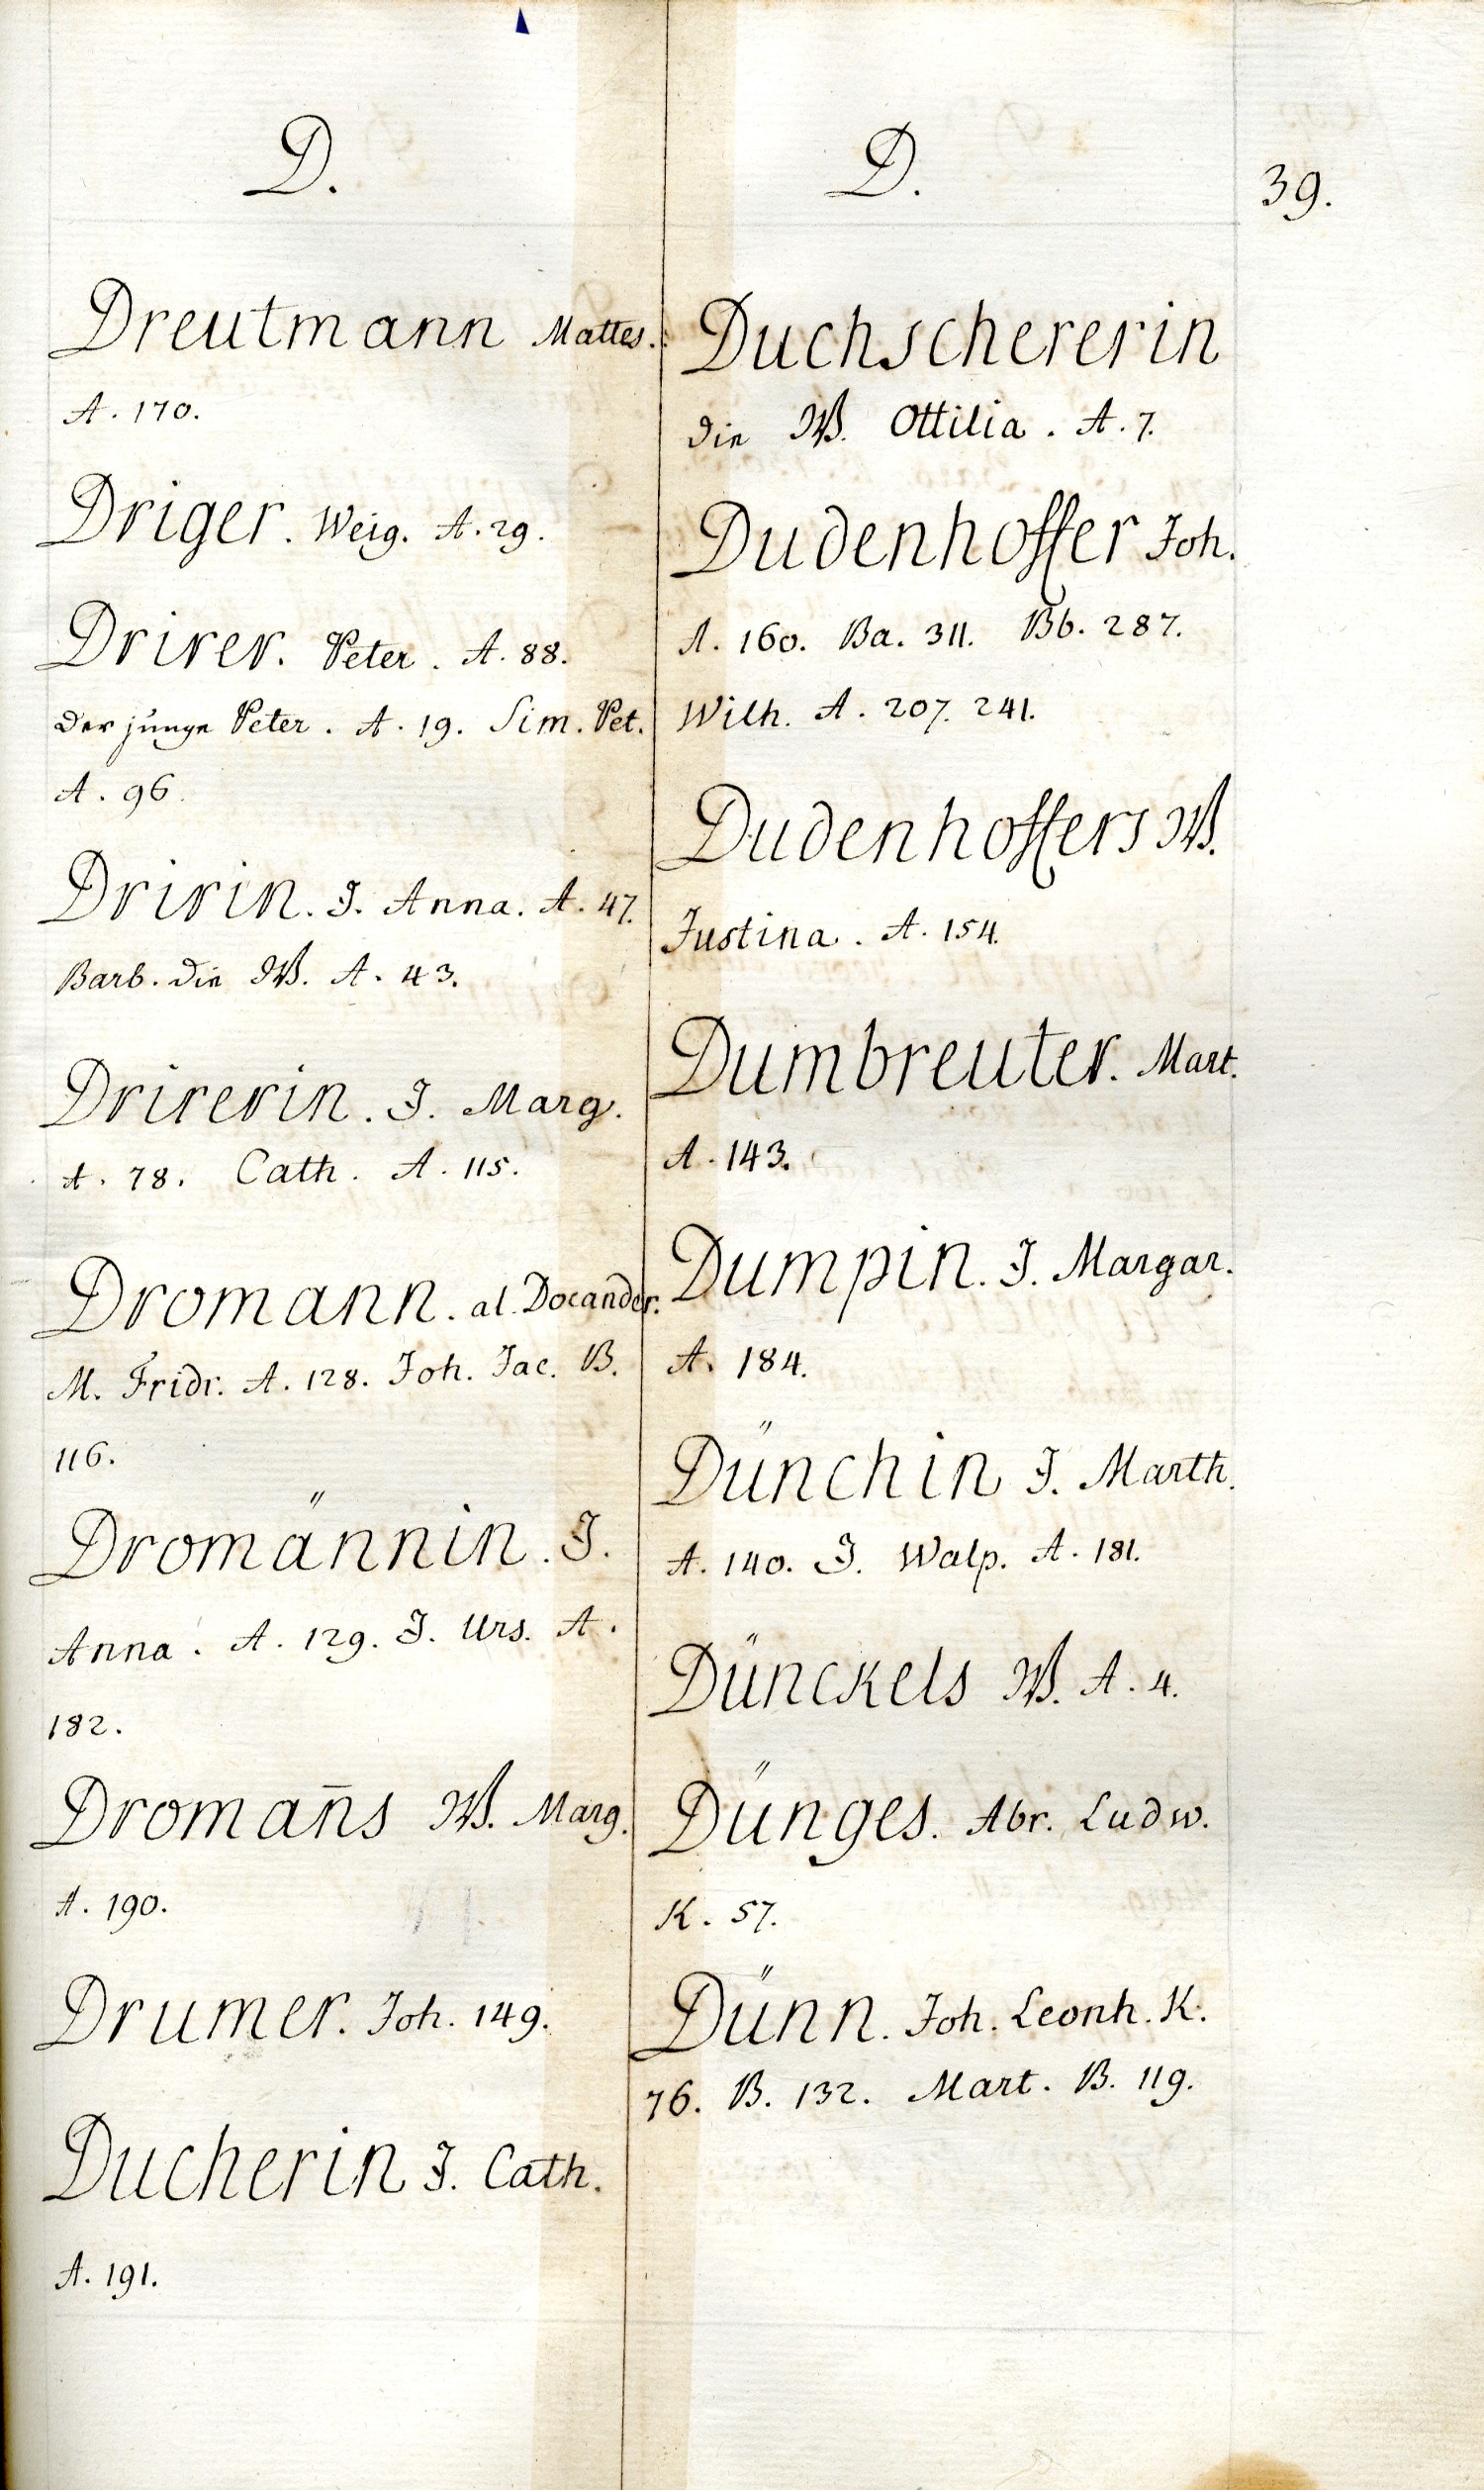 D.
Dreutmann Mattes.
A. 170.
Driger. Weig. A. 29.
Drirer. Peter. A. 88.
der junge Peter. A. 19. Sim. Pet.
A. 96.
Dririn. J. Anna. A. 47.
Barb. die W. A. 43.
Drirerin. J. Marg.
A. 78. Cath. A. 115.
Dromann. al. Docander.
M. Fridr. A. 128. Joh. Jac. B.
116.
Dromännin. J.
Anna. A. 129. J. Urs. A.
182.
Droman̄s W. Marg.
A. 190.
Drumer. Joh. 149.
Ducherin J. Cath.
A. 191.
D.
39.
Duchschererin
die W. Ottilia. A. 7.
Dudenhoffer Joh.
A. 160. Ba. 311. Bb. 287.
Wilh. A. 207. 241.
Dudenhoffers W.
Justina. A. 154.
Dumbreuter. Mart.
A. 143.
Dumpin. J. Margar.
A. 184.
Dünchin J. Marth.
A. 140. J. Walp. A. 181.
Dünckels W. A. 4.
Dünges. Abr. Ludw.
K. 57.
Dünn. Joh. Leonh. K.
76. B. 132. Mart. B. 119.